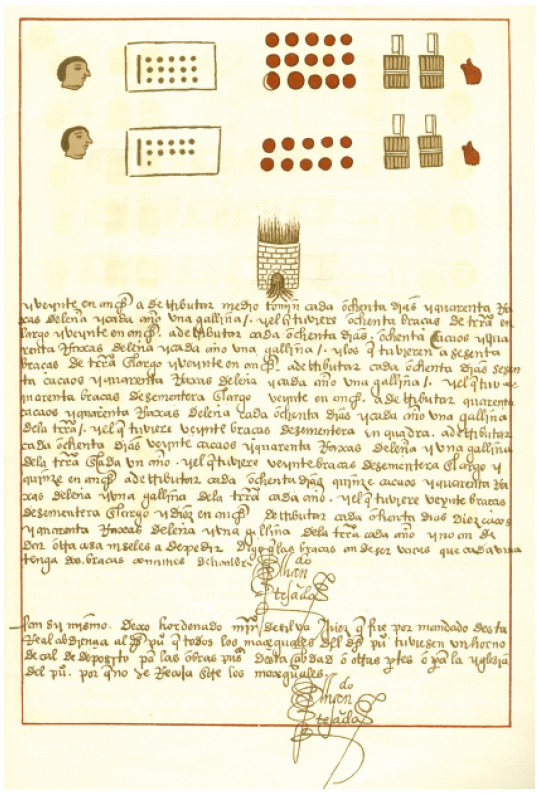 y veynte en anch̃o a de tributar medio tomĩn cada ochenta dias y quarenta Ra
xas de leña y cada año vna gallina /. y el q̃ tuviere ochenta bracas de trr̃a en
largo y veynte en anch̃o. a de tributar cada ochenta dias ochenta Cacaos y qua
renta Raxas de leña y cada año vna gallina /. y los q̃ tubieren a sesenta
bracas de trr̃a El argo y veynte en anch̃o. a de tributar cada ochenta dias sesen
ta cacaos y quarenta Raxas de leña y cada año vna gallina /. y el q̃ tuv
quarenta bracas de sementera El argo veynte en anch̃o. a de tributar quarenta
cacaos y quarenta Raxas de leña cada ochenta dias y cada año vna gallina
de la trr̃a /. y el q̃ tuviere veynte bracas de sementera in quadra. a de tributar
cada ochenta dias veynte cacaos y quarenta Raxas de leña y vna gallina
de la trr̃a Cada vn año. y el q̃ tuviere veynte bracas de sementera El argo y
quinze en anch̃o a de tributar cada ochenta dias quinze cacaos y quarenta Ra
xas de leña y vna gallina de la trr̃a cada año. y el q̃ tuviere veynte bracas
de sementera El argo y diez en anch̃o de tributar cada ochenta dias diez cacaos
y quarenta Raxas de leña y vna gallina de la trr̃a cada año y no an de
dar otra cosa ni se les a de pedir las bracas an de ser que cada vna
tenga dos bracas comunes de honbre
Juan
tejada
son su mismo. Dexo hordenado de silva Juez q̃ fue por mandado desta
Real abdiençia al dh̃o pũ q̃ todos los maceguales del dh̃o pũ tuviesen vn horno
de cal de deposito pã las obras desta cibdad o otras ptes o pã la yglesia
del pũ. por q̃ no se los maceguales.
Juan
tejada